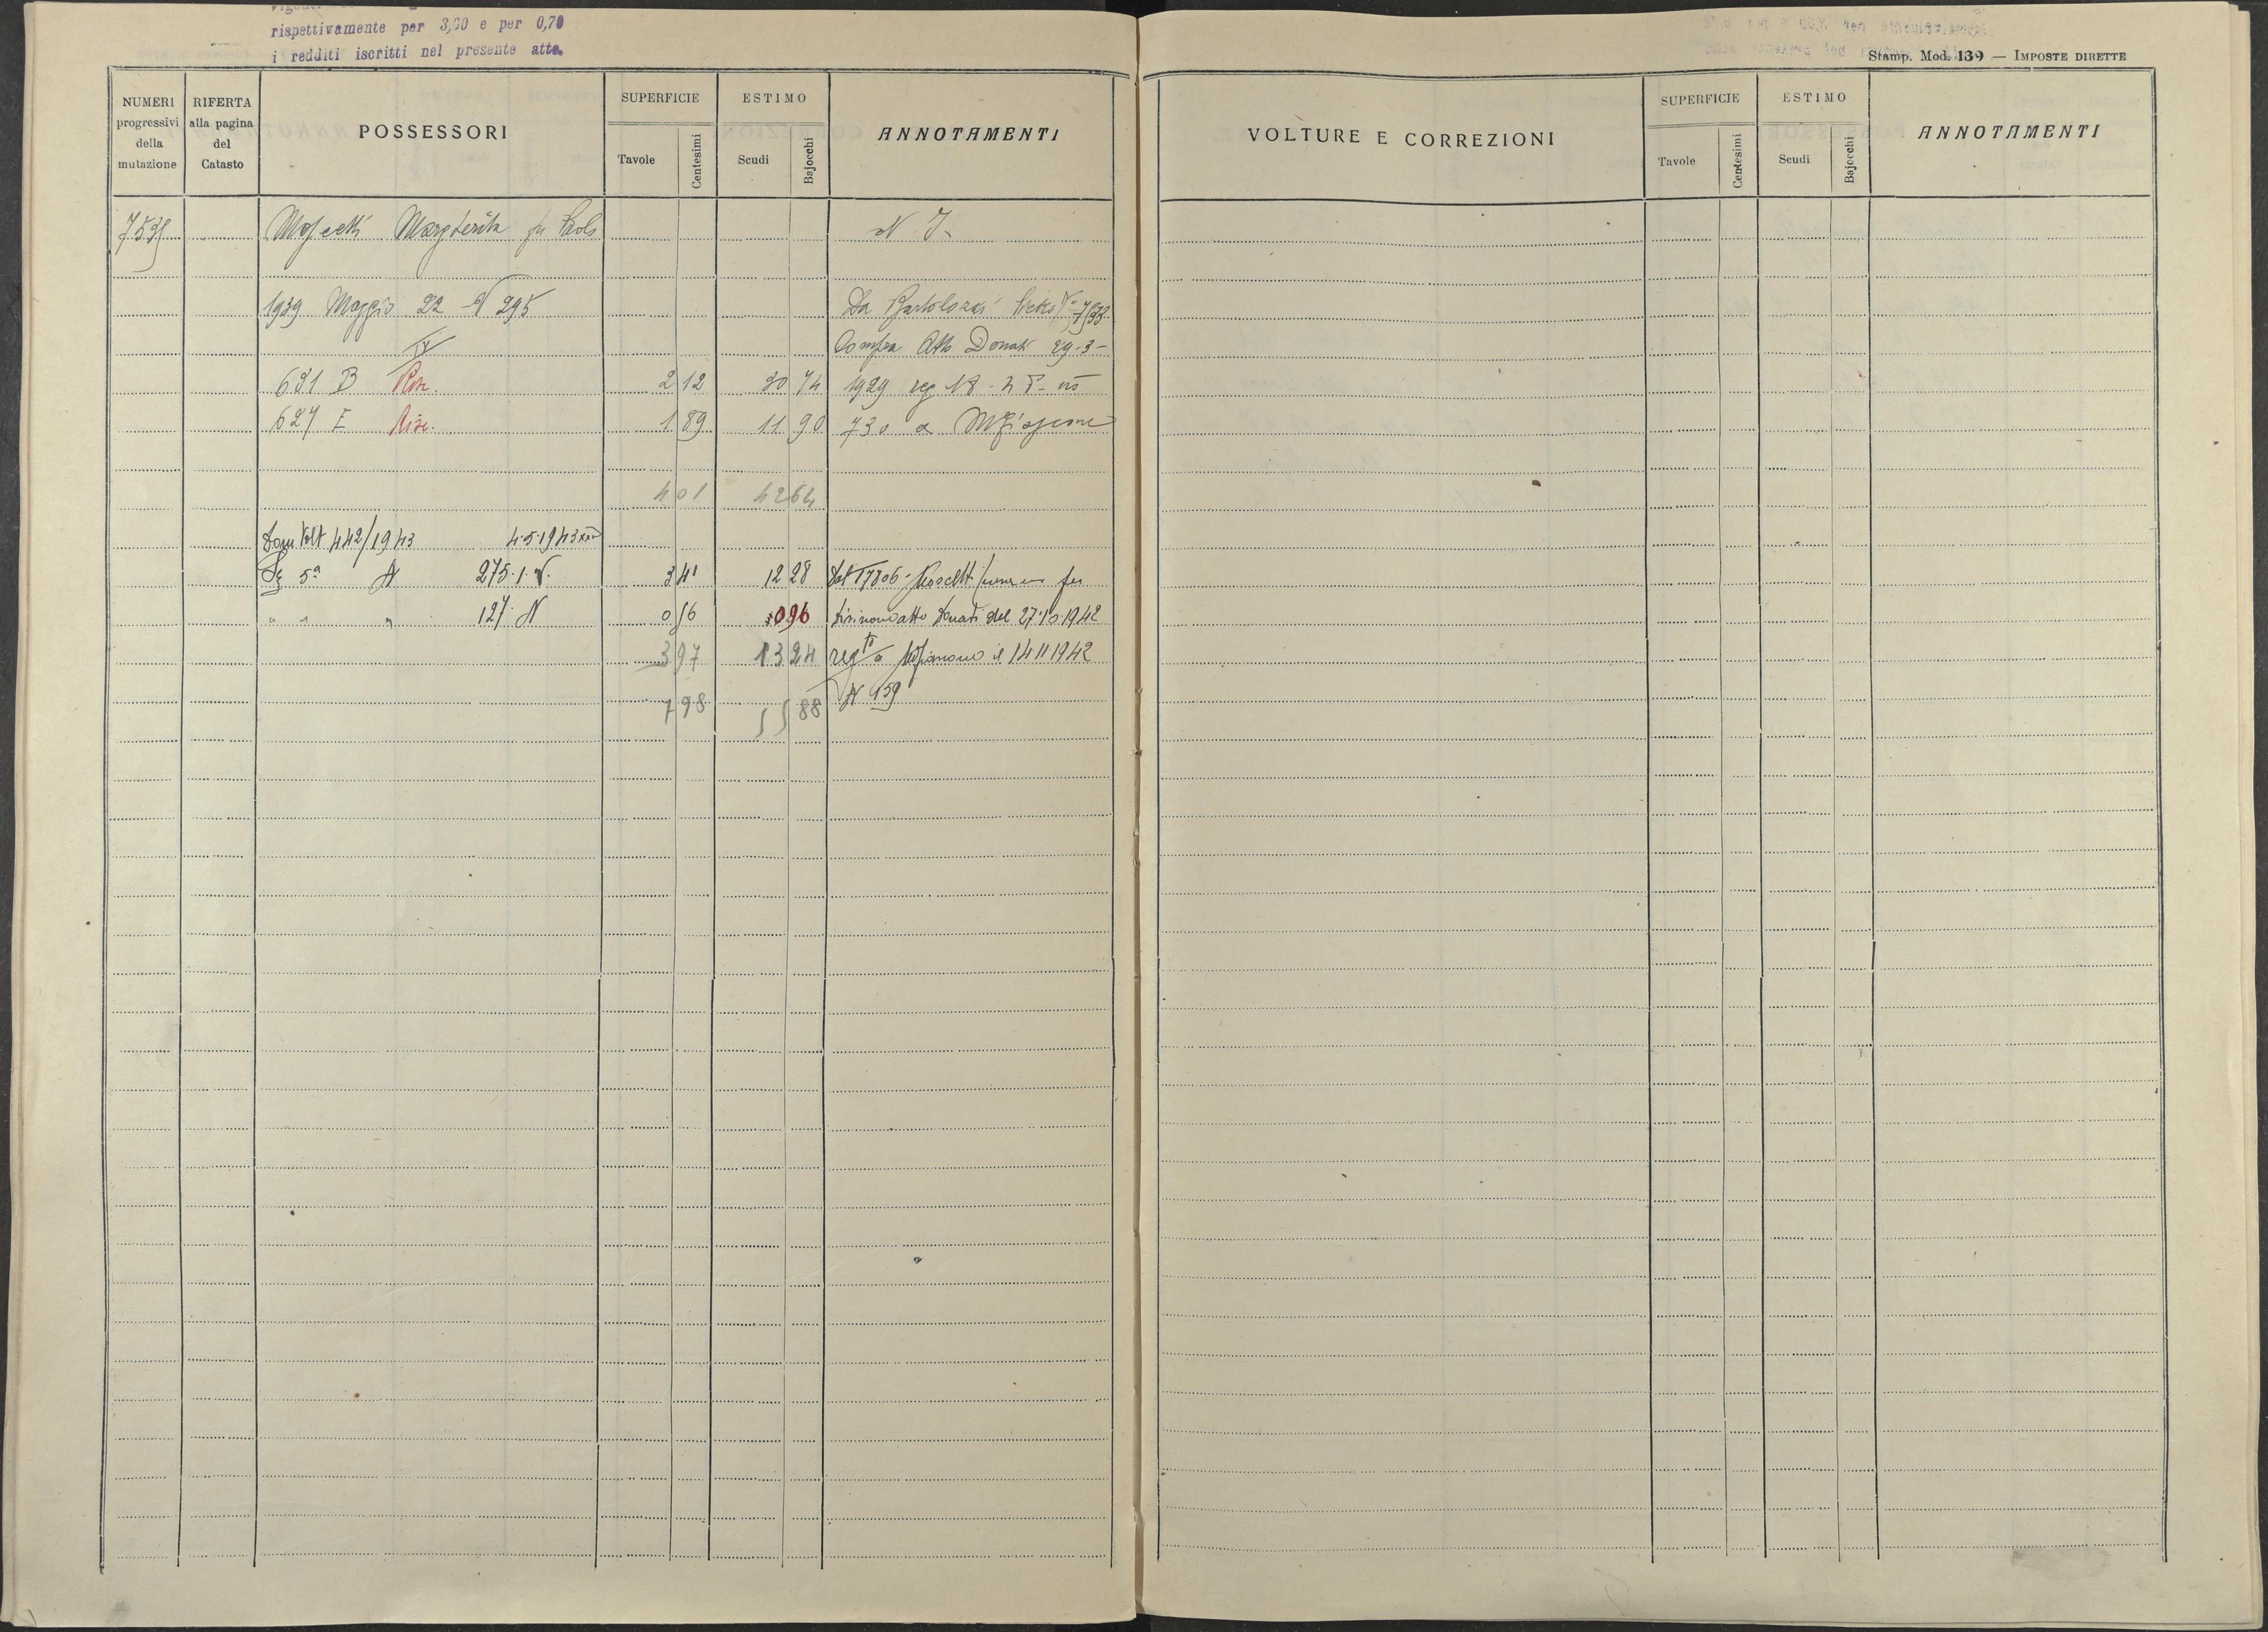 rispettivamente per 3,60 e per 0,70
i redditi iscritti nel presente atto.
NUMERI progressivi della mutazione
RIFERTA alla pagina del Catasto
POSSESSORI
SUPERFICIE
Tavole
Centesimi
ESTIMO
Scudi
Bajocchi
ANNOTAMENTI
Margherita fu Paolo
1929 Maggio 22 N 295
Da Bartolozzi
IV
Compra Atto Donati 29-3-
631 B Rin. 2 12 30 74 1929 reg
627 E Rise. 1 89 11 90 730 a
4 01 42 64
Dom Volt 442/1943 4.5.1943
Sz 5ª A 275.1.N. 3 41 12 28
" " " 127 N 0 56 0 96 atto Donati del 27.10.1942
3 97 13 24 regto a il 14 11 1942
7 98 55 88 N 159
Stamp. Mod. 139 — IMPOSTE DIRETTE
VOLTURE E CORREZIONI
SUPERFICIE
Tavole
Centesimi
ESTIMO
Scudi
Bajocchi
ANNOTAMENTI